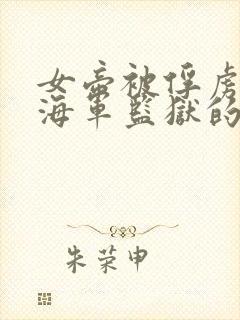 女帝被俘虏
海军监狱的
朱荣申